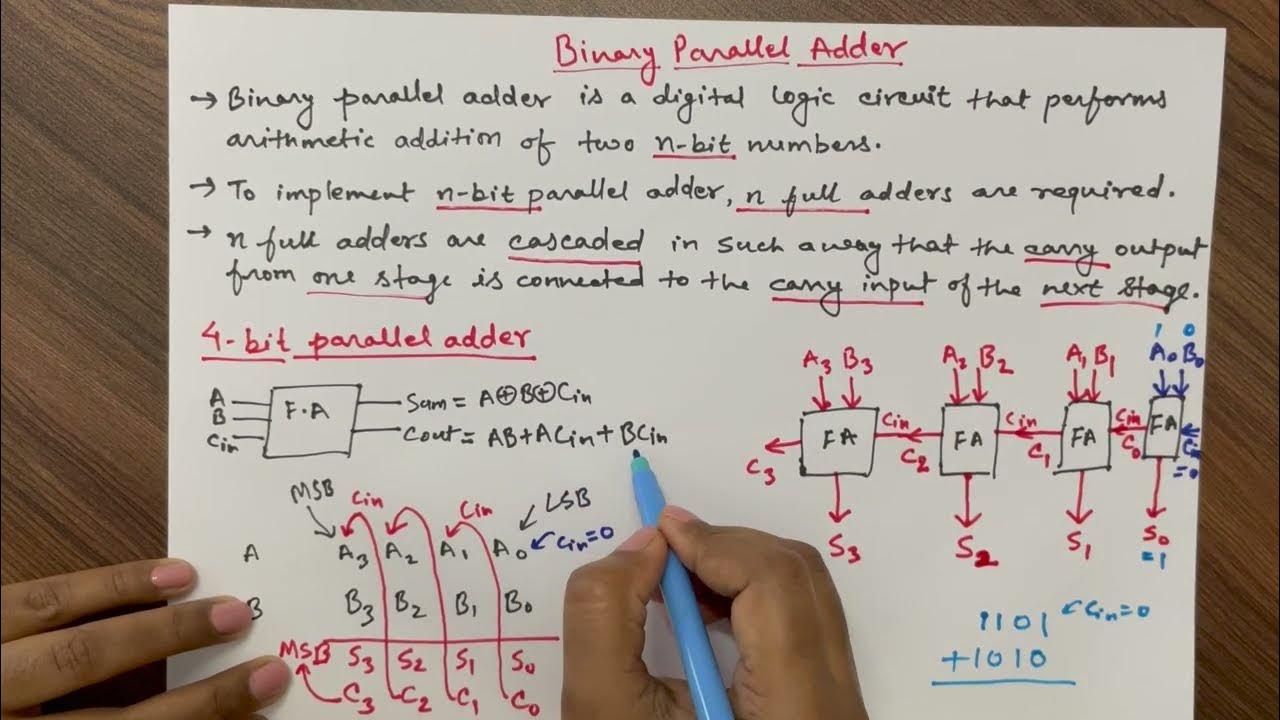 Binary Parallel Adder
→ Binary parallel adder is a digital logic circuit that performs
arithmetic addition of two n-bit numbers.
→ To implement n-bit parallel adder, n full adders are required.
→ n full adders are cascaded in such a way that the carry output
from one stage is connected to the carry input of the next stage.
4-bit parallel adder
A
B
Cin
F.A
Sum = A⊕B⊕Cin
Cout = AB+ACin+BCin
MSB Cin Cin LSB
A A3 A2 A1 A0 Cin=0
B B3 B2 B1 B0
MSB S3 S2 S1 S0
C3 C2 C1 C0
1 0
A3 B3 A2 B2 A1 B1 A0 B0
FA Cin FA Cin FA Cin FA Cin
C3 C2 C1 C0 =0
S3 S2 S1 S0
=1
1101 Cin=0
+1010